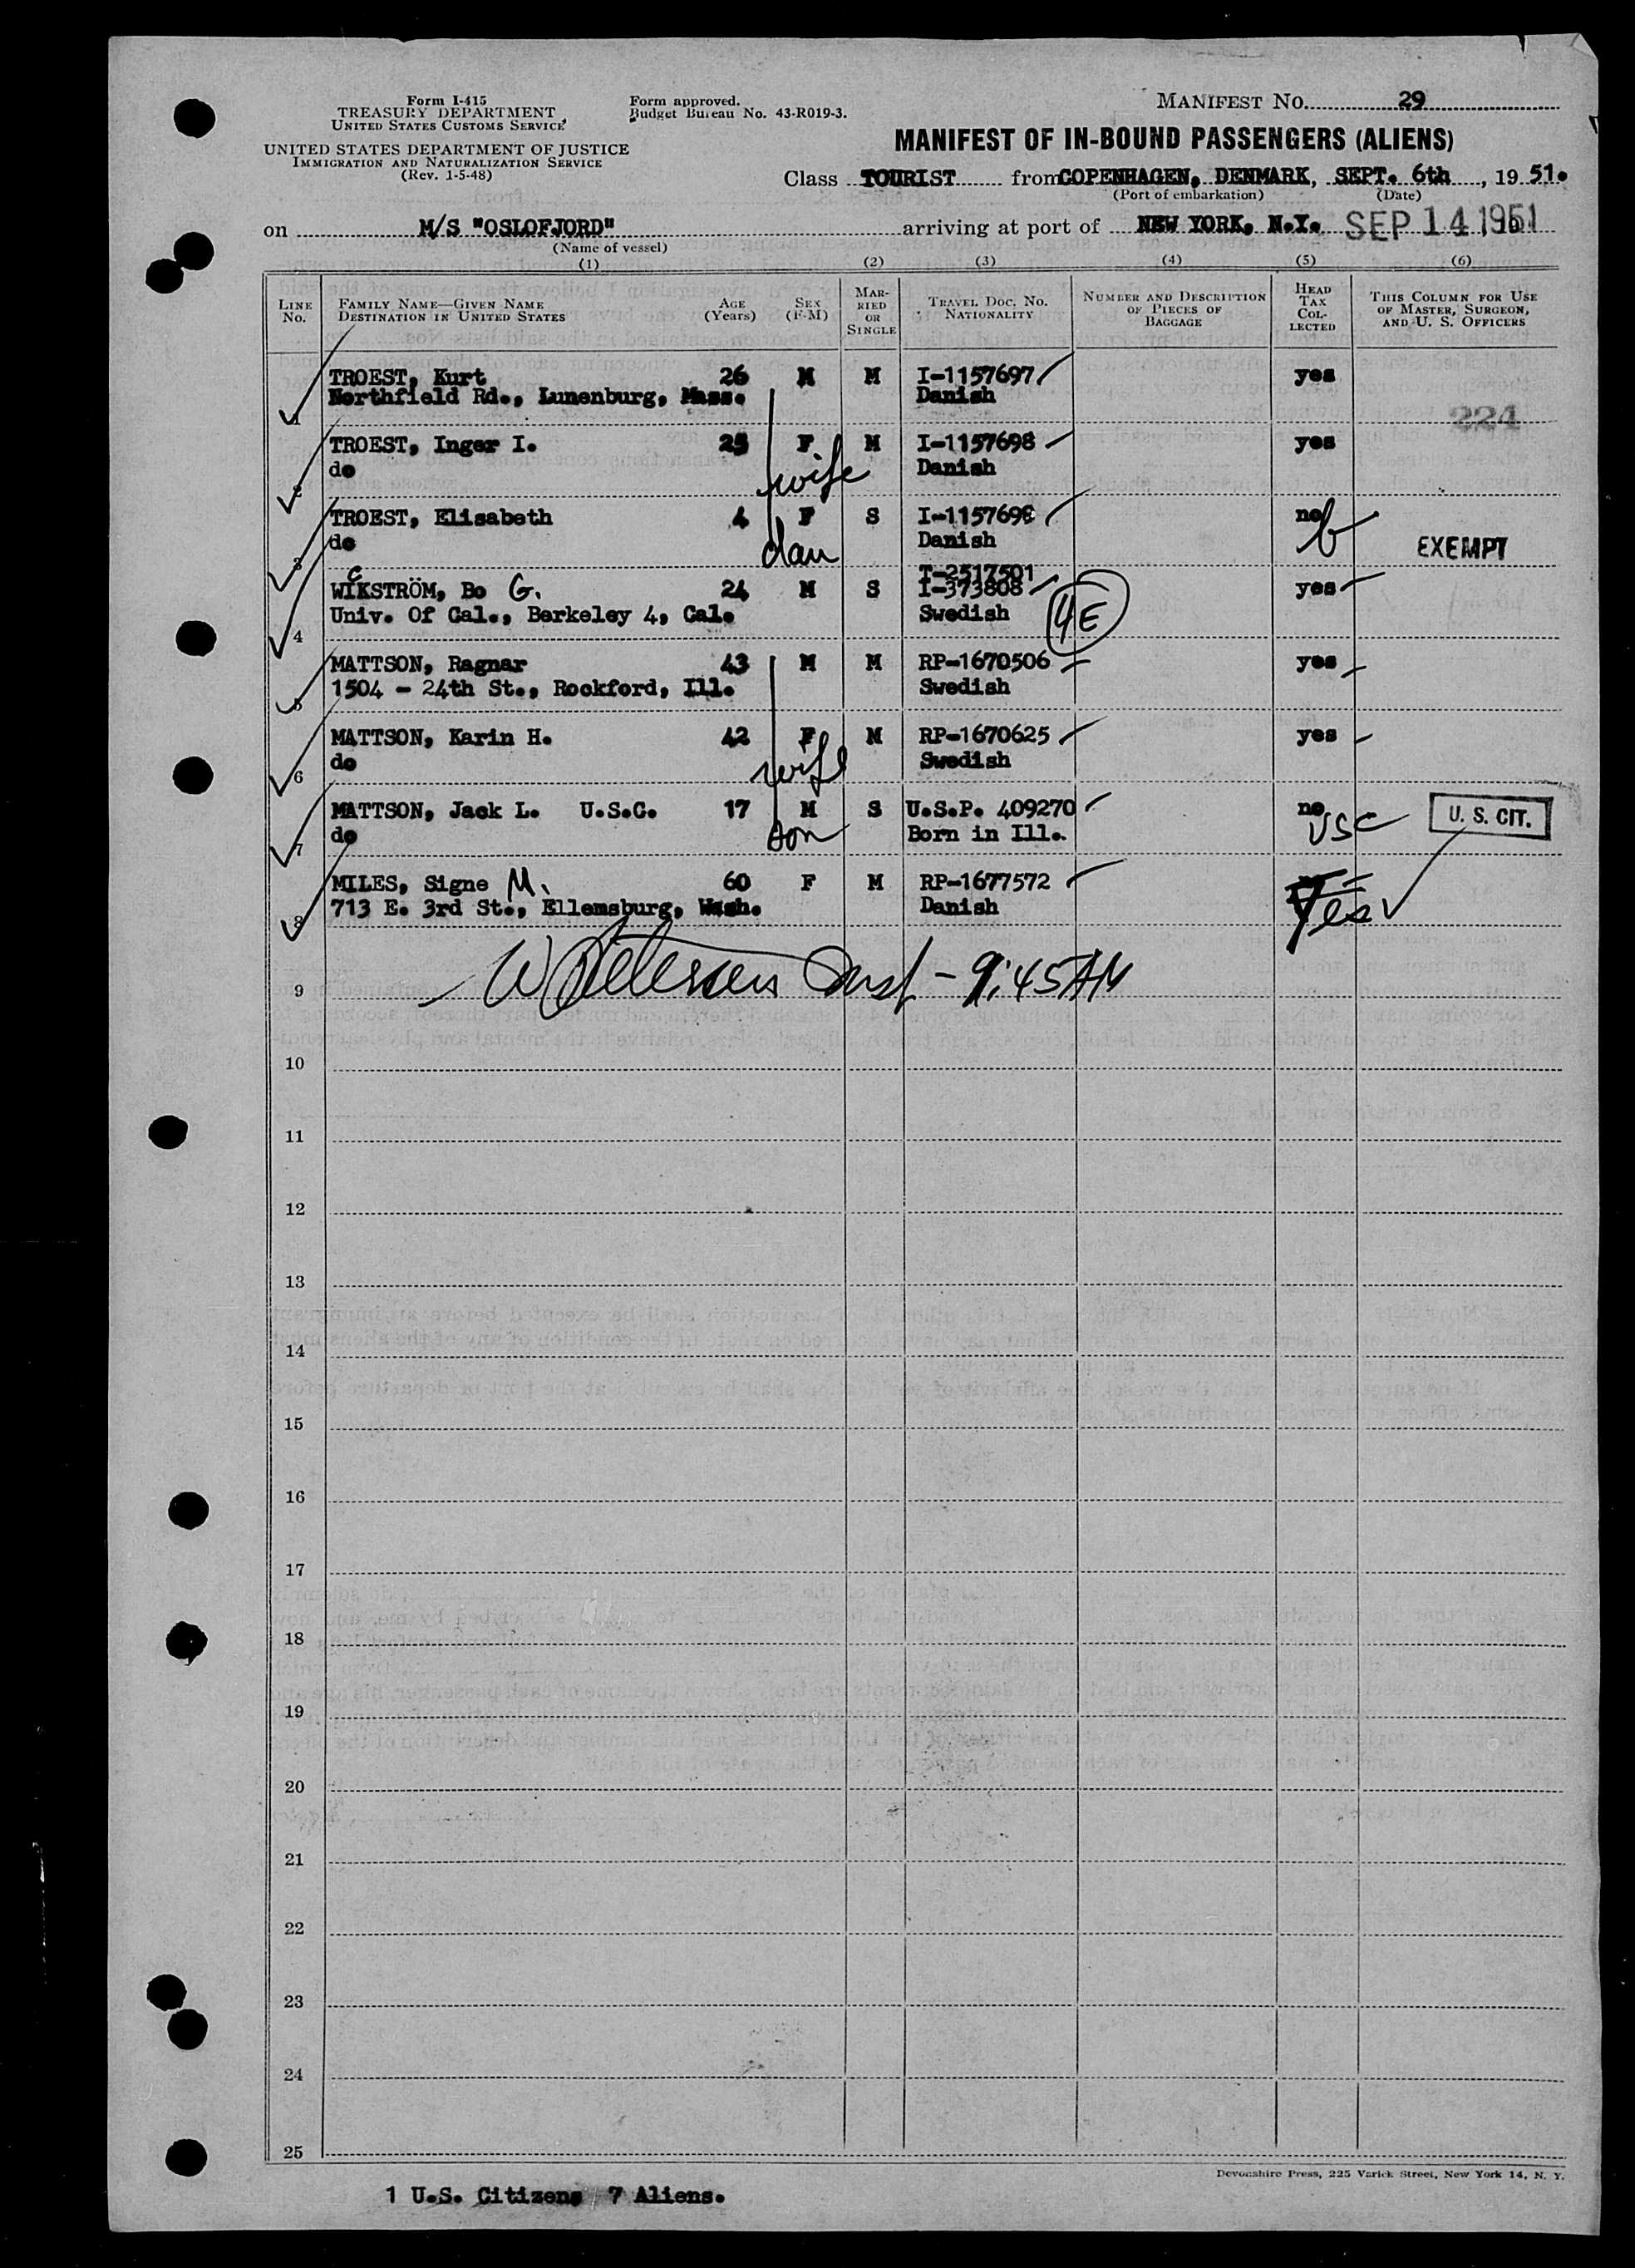 Form I-415
TREASURY DEPARTMENT
UNITED STATES CUSTOMS SERVICE
UNITED STATES DEPARTMENT OF JUSTICE
IMMIGRATION AND NATURALIZATION SERVICE
(Rev. 1-5-48)
Form approved.
Budget Bureau No. 43-R019-3.
MANIFEST NO. 29
MANIFEST OF IN-BOUND PASSENGERS (ALIENS)
Class TOURIST from COPENHAGEN, DENMARK, SEPT. 6th, 19 51.
(Port of embarkation) (Date)
on M/S "OSLOFJORD" arriving at port of NEW YORK, N.Y. SEP 14 1951
(Name of vessel)
(1) (2) (3) (4) (5) (6)
LINE NO. FAMILY NAME—GIVEN NAME DESTINATION IN UNITED STATES AGE (Years) SEX (F-M) MARRIED OR SINGLE TRAVEL DOC. NO. NATIONALITY NUMBER AND DESCRIPTION OF PIECES OF BAGGAGE HEAD TAX COLLECTED THIS COLUMN FOR USE OF MASTER, SURGEON, AND U. S. OFFICERS
TROEST, Kurt 26 M M I-1157697 yes
1 Northfield Rd., Lunenburg, Mass. Danish
224
TROEST, Inger I. 25 F M I-1157698 yes
2 do wife Danish
TROEST, Elisabeth 4 F S I-115769 no
3 do dau Danish EXEMPT
T-2517501
WICKSTRÖM, Bo G. 24 M S I-373808 yes
4 Univ. Of Cal., Berkeley 4, Cal. Swedish 4E
MATTSON, Ragnar 43 M M RP-1670506 yes
5 1504 - 24th St., Rockford, Ill. Swedish
MATTSON, Karin H. 42 F M RP-1670625 yes
6 do wife Swedish
MATTSON, Jack L. U.S.C. 17 M S U.S.P. 409270 no USC U. S. CIT.
7 do son Born in Ill.
MILES, Signe M. 60 F M RP-1677572 Yes
8 713 E. 3rd St., Ellemsburg, Wash. Danish
9 W Petersen Insp - 9:45 AM
10
11
12
13
14
15
16
17
18
19
20
21
22
23
24
25
Devonshire Press, 225 Varick Street, New York 14, N. Y.
1 U.S. Citizen, 7 Aliens.